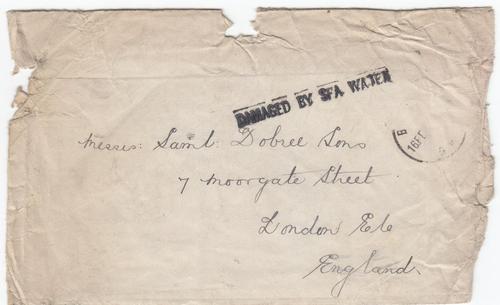 DAMAGED BY SEA WATER
B
16 FE
Messrs: Saml: Dobree Sons
7 Moorgate Street
London E.C.
England.